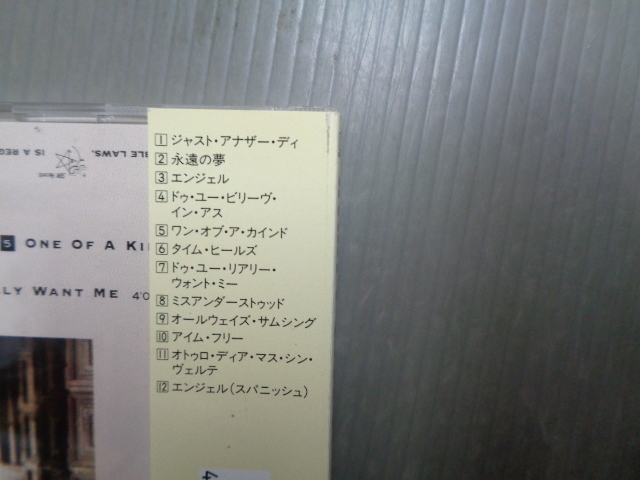 BLE LAWS.
IS A REG
5 ONE OF A KI
LY WANT ME 4'0
1 ジャスト・アナザー・ディ
2 永遠の夢
3 エンジェル
4 ドゥ・ユー・ビリーヴ・
イン・アス
5 ワン・オブ・ア・カインド
6 タイム・ヒールズ
7 ドゥ・ユー・リアリー・
ウォント・ミー
8 ミスアンダーストゥッド
9 オールウェイズ・サムシング
10 アイム・フリー
11 オトゥロ・ディア・マス・シン・
ヴェルテ
12 エンジェル(スパニッシュ)